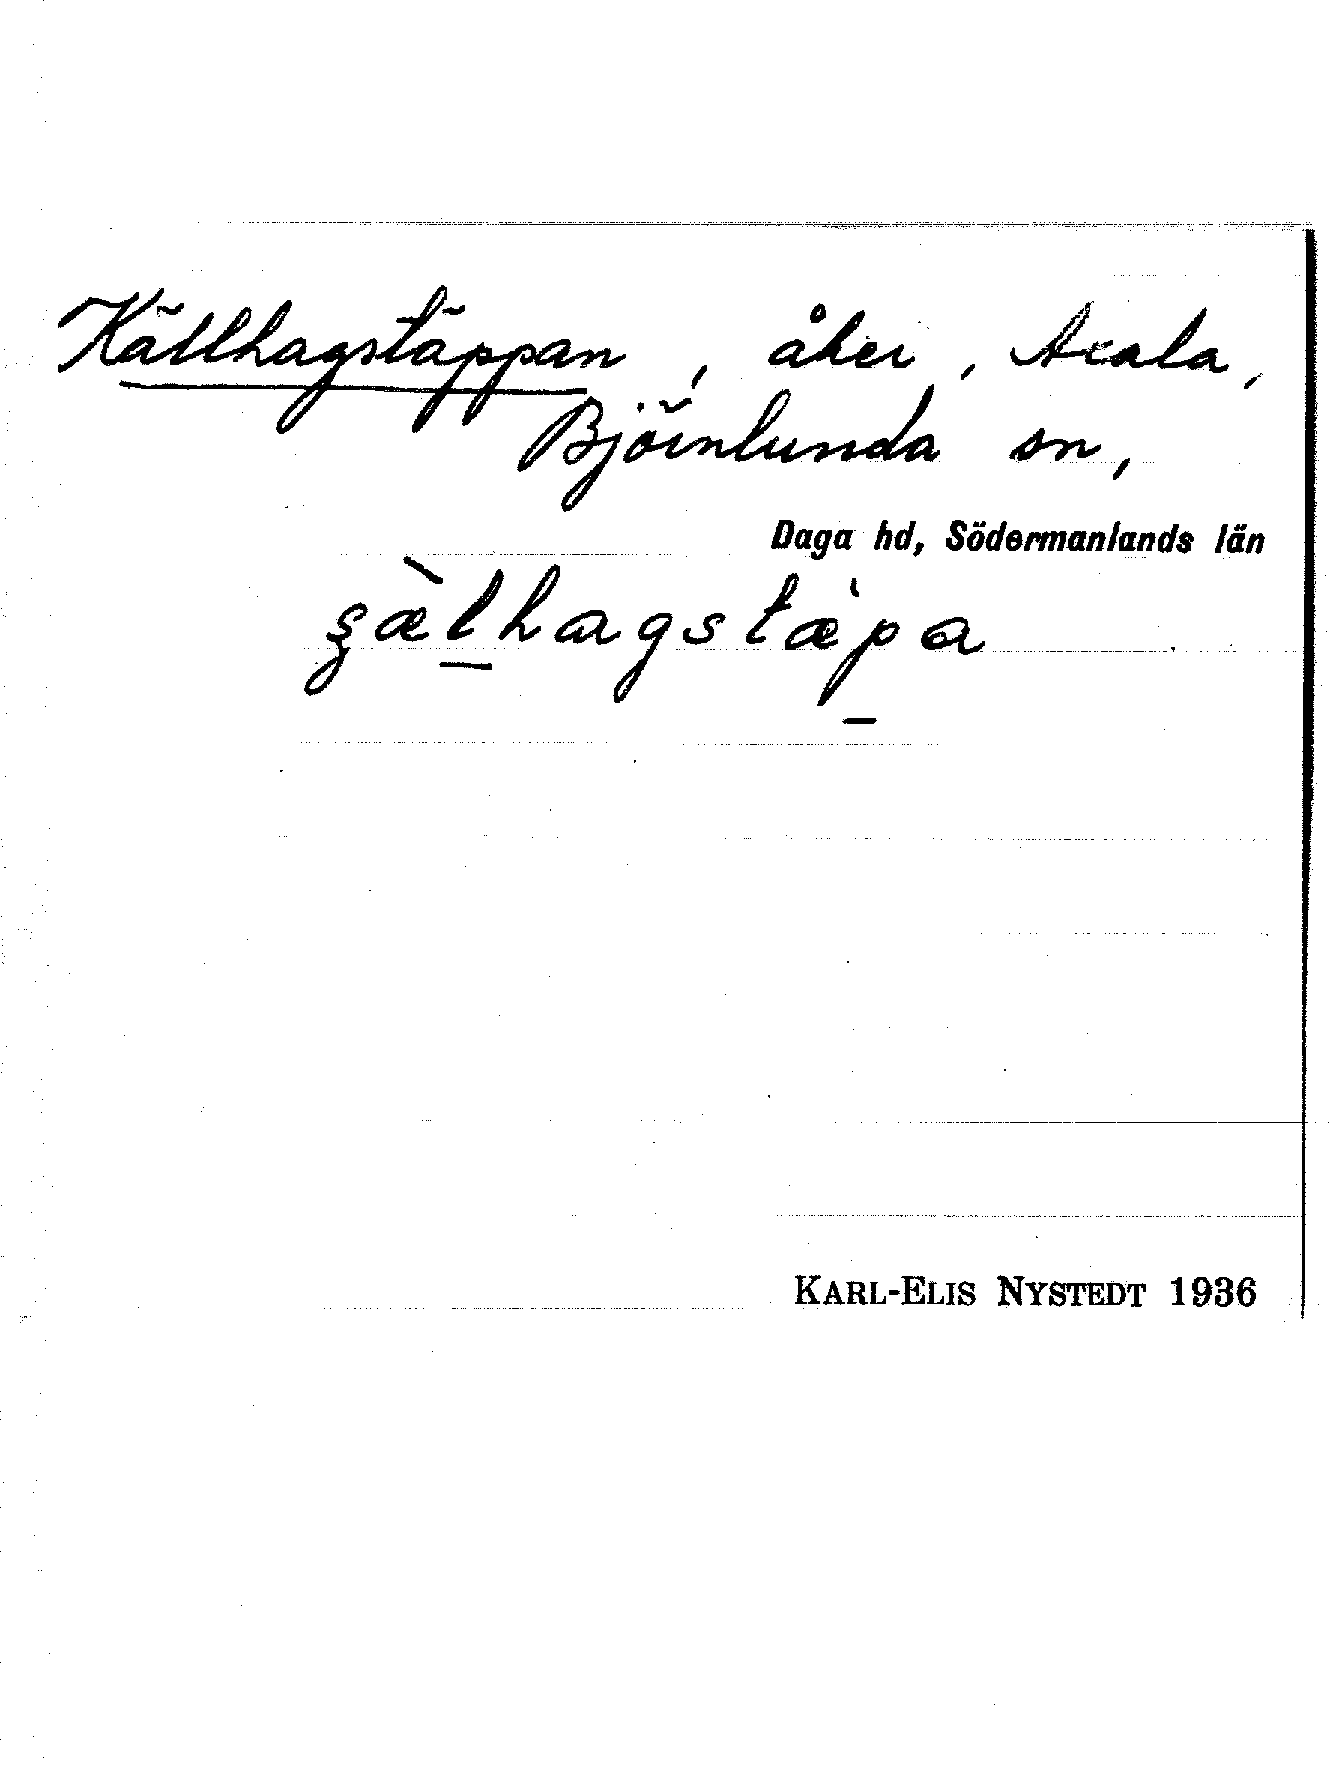 Källhagstäppan, åker, Axala,
Björnlunda sn,
Daga hd, Södermanlands län
ʂæ̀lhagstæ̀pa
KARL-ELIS NYSTEDT 1936